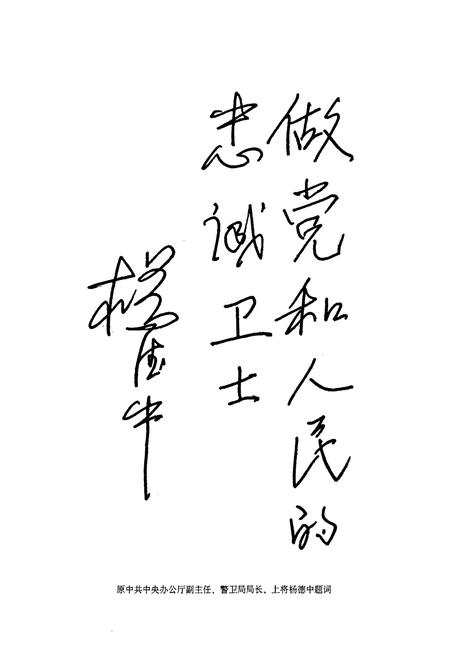 做党和人民的
忠诚卫士
杨德中
原中共中央办公厅副主任、警卫局局长、上将杨德中题词